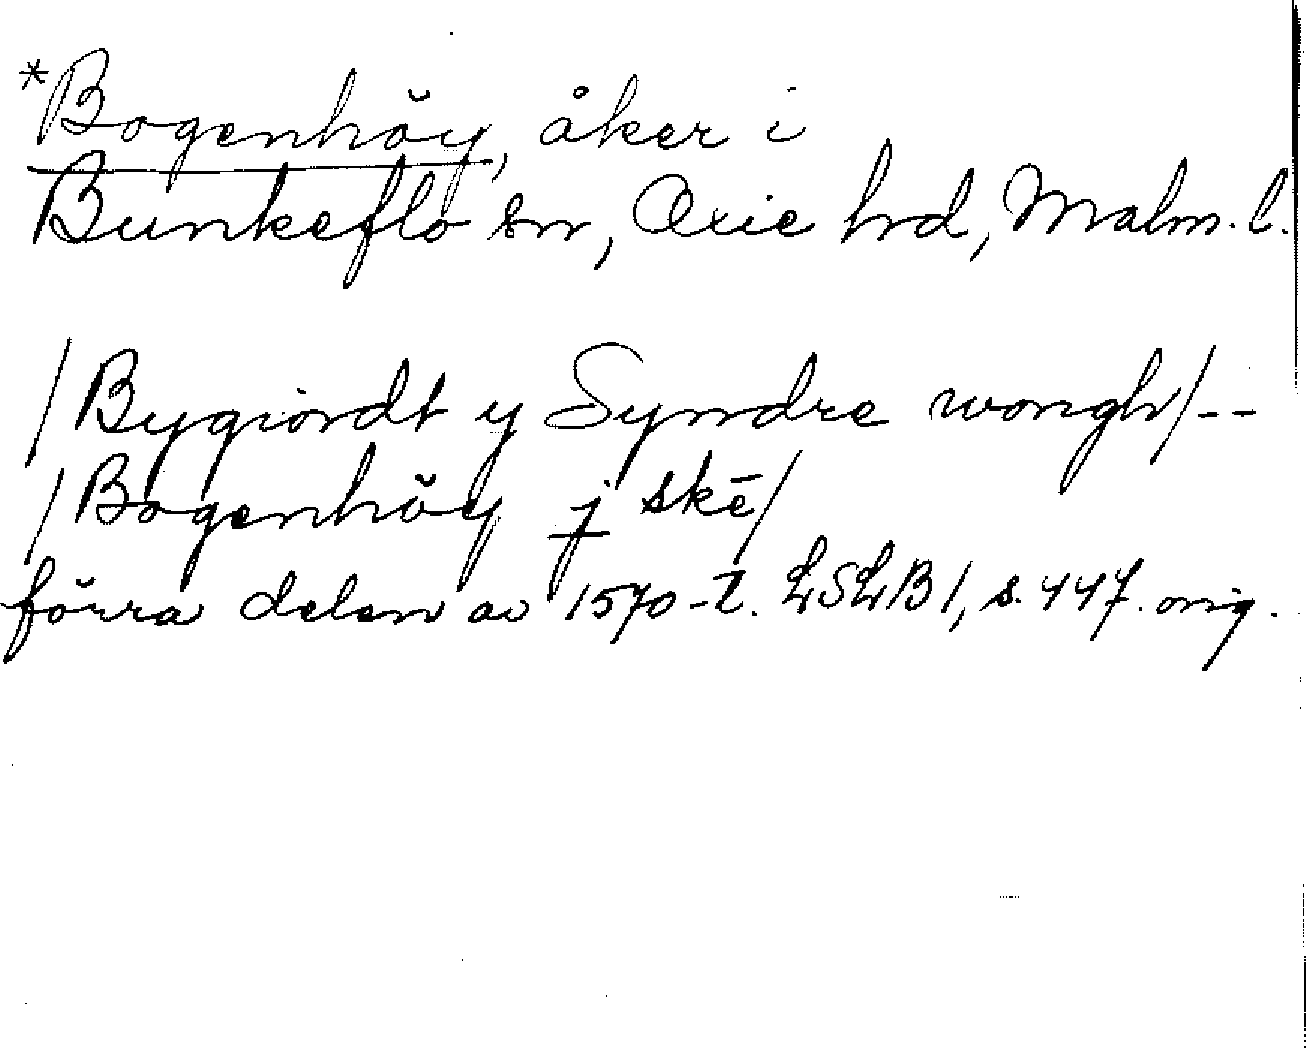 *Bogenhŏy, åker i
Bunkeflo sn, Oxie hrd, Malm. l.
/Bygiordt y Syndre wongh/--
/Bogenhŏy j skē/
förra delen av 1570-t. LSLB1, s. 447. orig.